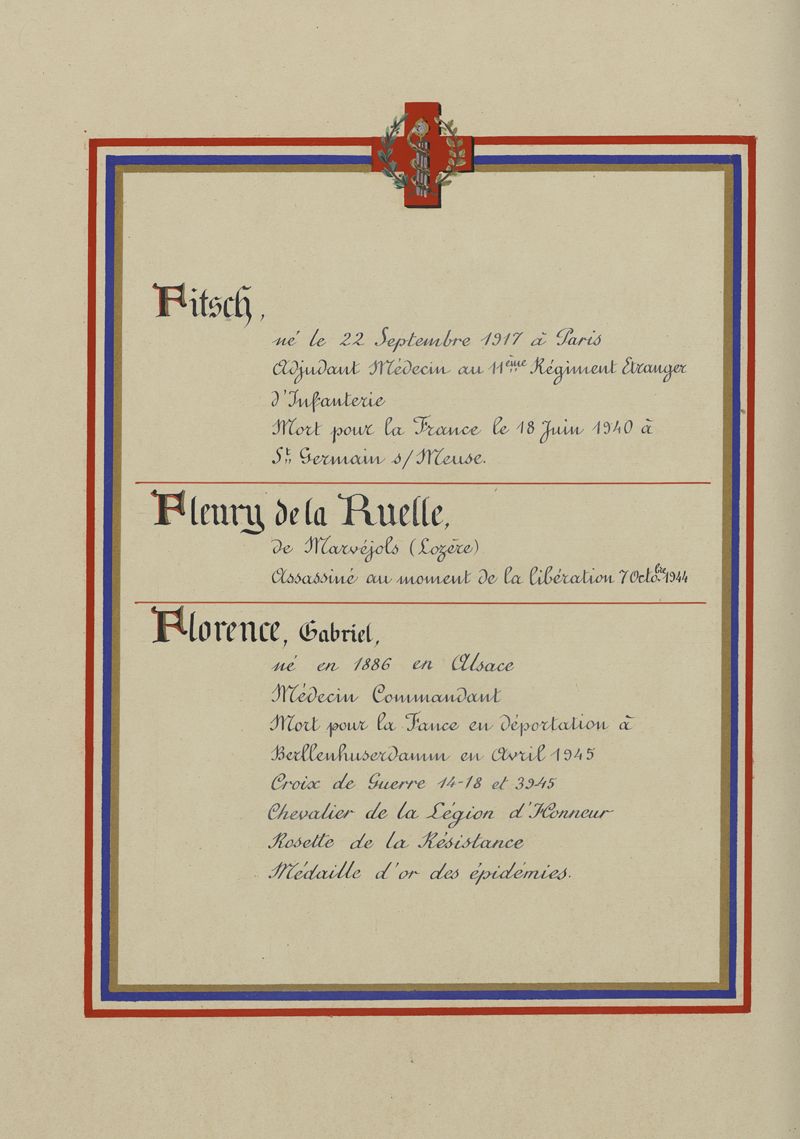 Fitsch,
né le 22 Septembre 1917 à Paris
Adjudant Médecin au 11ème Régiment Etranger
d'Infanterie
Mort pour la France le 18 Juin 1940 à
St Germain s/Meuse.
Fleury de la Ruelle,
de Marvéjols (Lozère)
Assassiné au moment de la libération 7 Octobre 1944
Florence, Gabriel,
né en 1886 en Alsace
Médecin Commandant
Mort pour la Fance en déportation à
Berllenhuserdamm en Avril 1945
Croix de Guerre 14-18 et 3945
Chevalier de la Légion d'Honneur
Rosette de la Résistance
Médaille d'or des épidémies.